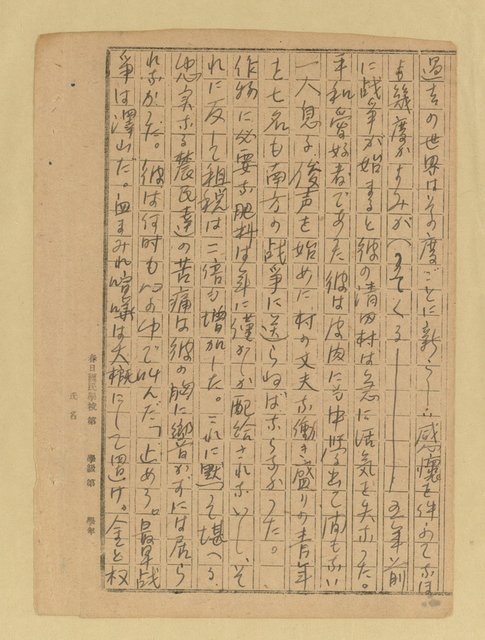 過去の世界はその度ごとに新らしい感懐を伴つてなほ
も幾度かよみがへつてくる――――五年前
に战爭が始まると彼の清田村は急に活気を失なつた。
平和愛好者であつた彼は皮肉にも中學を出て間もない
一人息子俊声を始めに村の丈夫な働き盛りの青年
を七名も南方の战爭に送らねばならなかつた。
作物に必要な肥料は年に僅かしか配給されないし、そ
れに反して租税は二倍も增加した。これに默つて堪へる
忠実なる農民達の苦痛は彼の胸に響かずには居ら
れなかつた。彼は何時も心の中で叫んだ「止めろ。最早战
爭は澤山だ。血まみれ喧嘩は大概にして置け。金と权
春日國民學校 第 學級 第 學年
氏名